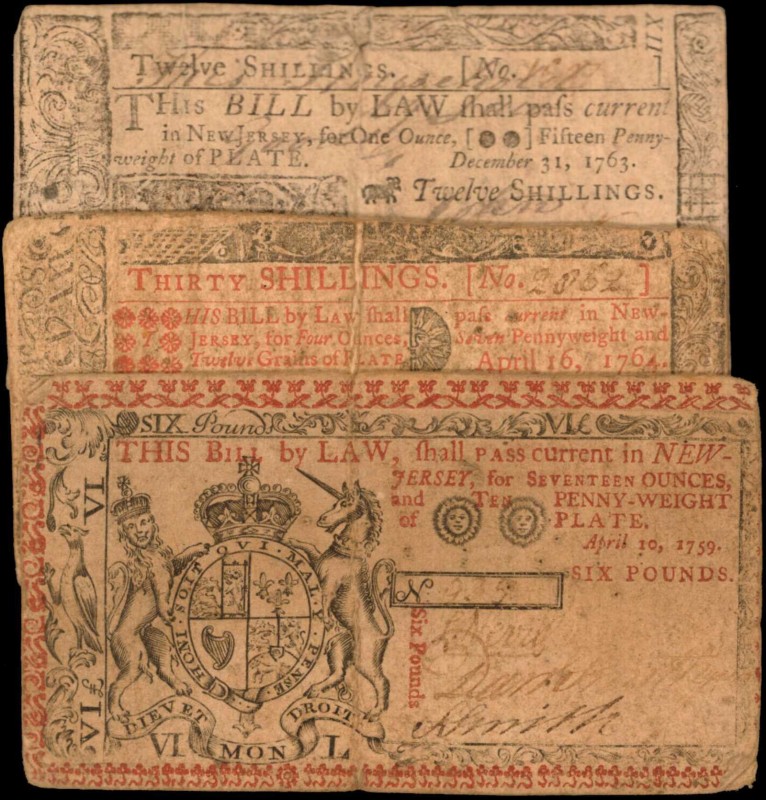 XII
Twelve SHILLINGS. [No. ]
THis BILL by LAW ſhall paſs current
in NEW JERSEY, for One Ounce, [ ] Fifteen Penny-
weight of PLATE. December 31, 1763.
Twelve SHILLINGS.
THIRTY SHILLINGS. [No. 2862 ]
THIS BILL by LAW ſhall paſs current in NEW-
JERSEY, for Four Ounces, Seven Pennyweight and
Twelve Grains of PLATE. April 16, 1764.
SIX Pound VI
THIS Bill by LAW, ſhall PASS current in NEW-
JERSEY, for SEVENTEEN OUNCES,
and TEN PENNY-WEIGHT
of PLATE.
April 10, 1759.
SIX POUNDS.
N
Six Pounds
Smith
VI
IV
HONI · SOIT QVI · MAL · Y · PENSE
DIEV ET MON DROIT
VI L